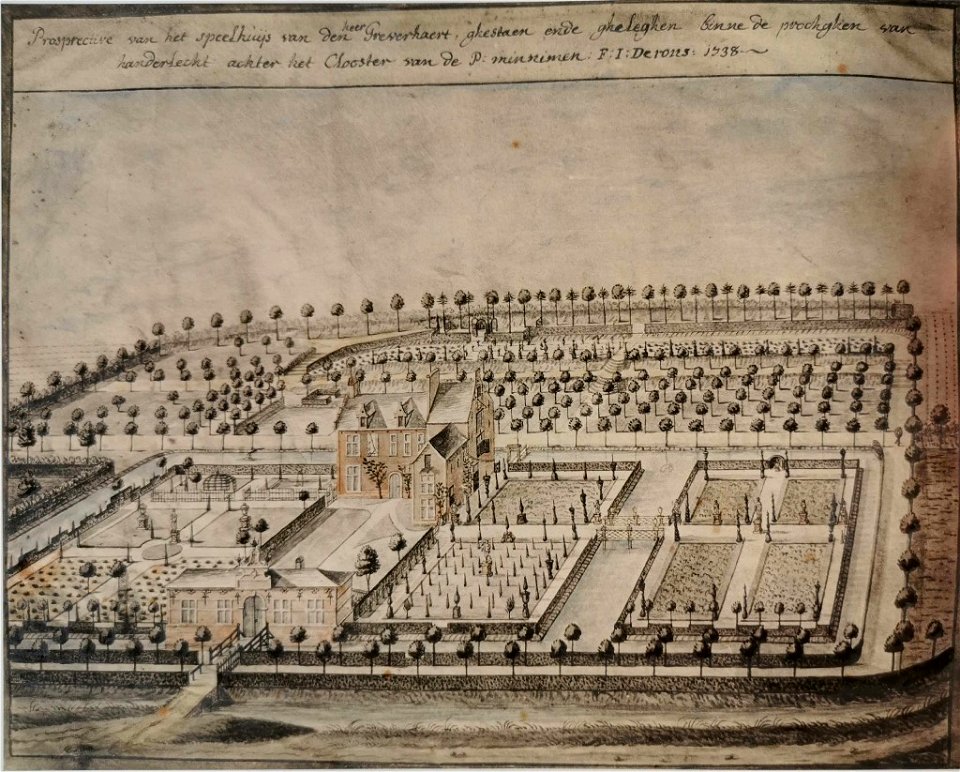 heer
Prosprecuve van het speelhuijs van den Greverhaert, ghestaen ende gheleghen binne de prochghen van
handerlecht achter het Clooster van de P: minnimen. F: I: Derons: 1738